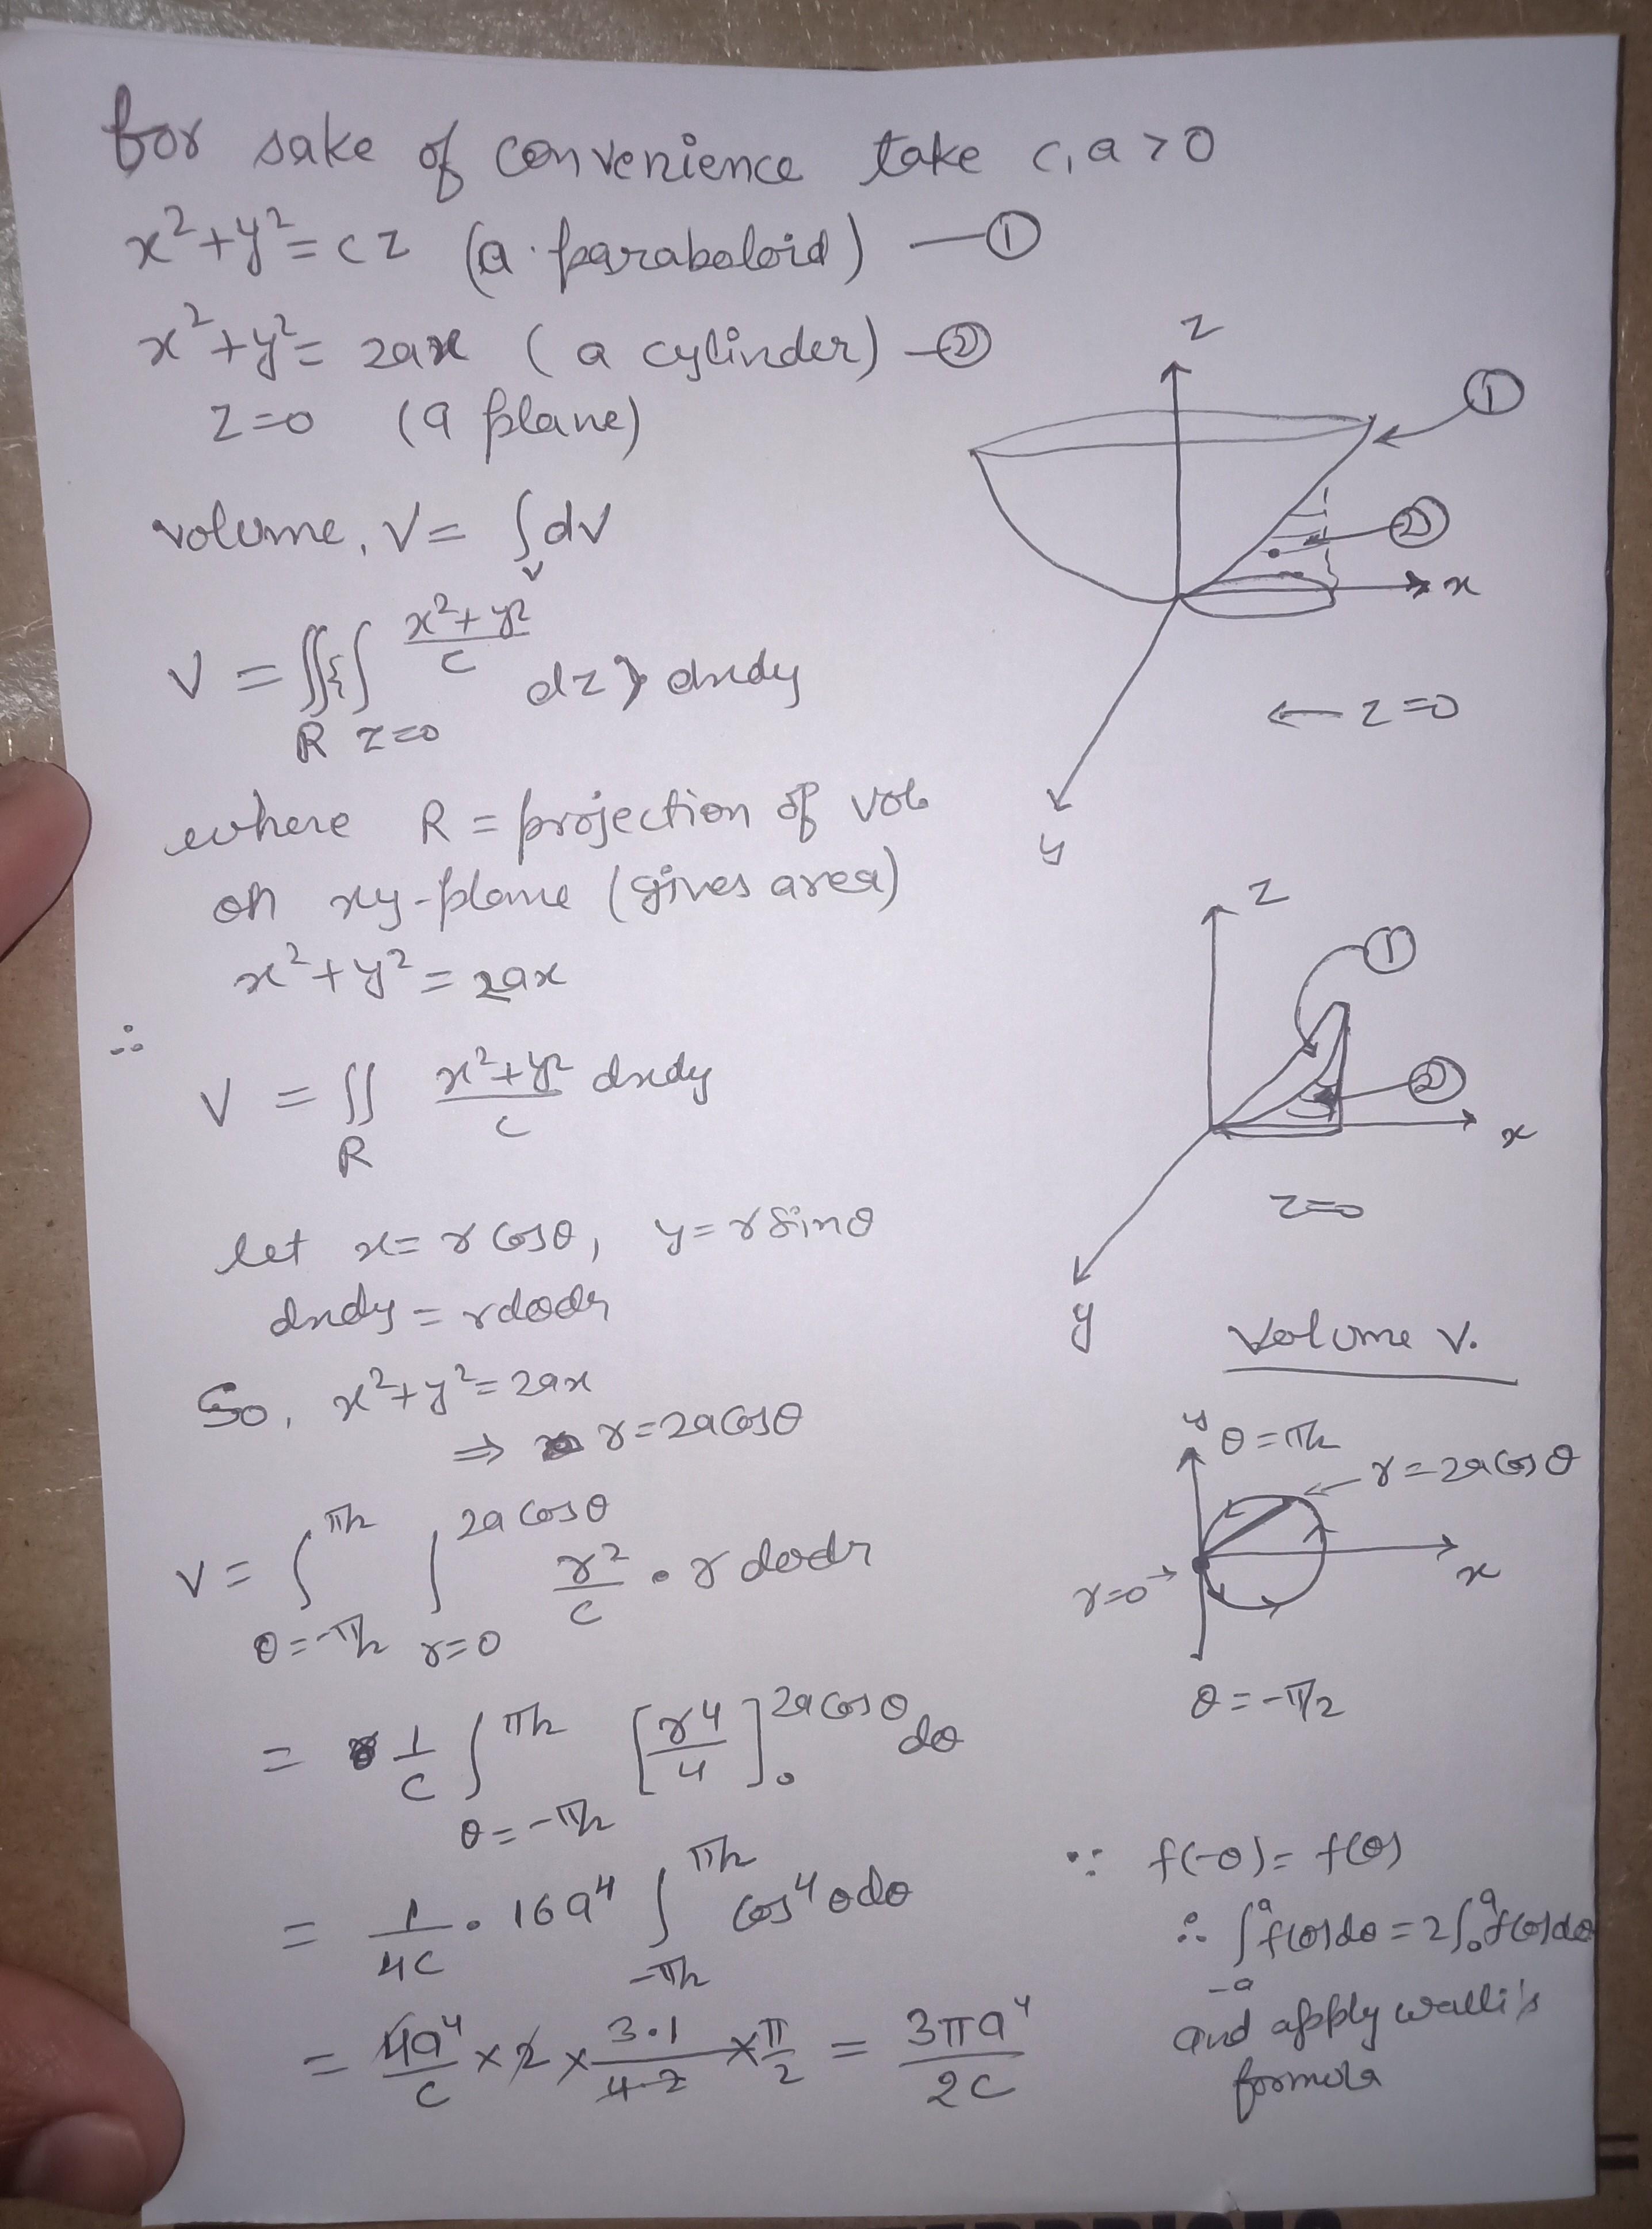 for sake of convenience take c, a > 0
x² + y² = cz (a paraboloid) — ①
x² + y² = 2ax (a cylinder) — ②
z = 0 (a plane)
volume, V = ∫_V dv
V = ∬_R {∫_{z=0}^{(x²+y²)/c} dz} dxdy
where R = projection of vol
on xy-plane (gives area)
x² + y² = 2ax
∴
V = ∬_R (x²+y²)/c dxdy
let x = r cosθ, y = r sinθ
dxdy = r dθdr
So, x² + y² = 2ax
⇒ r = 2a cosθ
V = ∫_{θ=-π/2}^{π/2} ∫_{r=0}^{2a cosθ} r²/c · r dθdr
= 1/c ∫_{θ=-π/2}^{π/2} [r⁴/4]_0^{2a cosθ} dθ
= 1/4c · 16a⁴ ∫_{-π/2}^{π/2} cos⁴θ dθ
= 4a⁴/c × 2 × 3·1/4·2 × π/2 = 3πa⁴/2c
z
①
②
x
← z = 0
y
z
①
②
x
z = 0
y
Volume V.
y θ = π/2
r = 2a cosθ
r = 0 →
x
θ = -π/2
∵ f(-θ) = f(θ)
∴ ∫_{-a}^{a} f(θ)dθ = 2∫_0^a f(θ)dθ
and apply walli's
formula